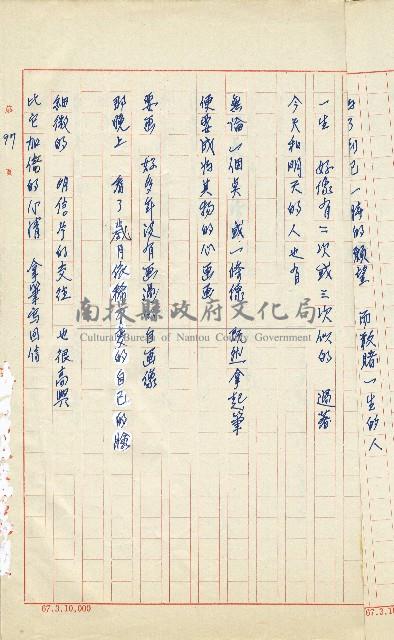 為了自己一時的願望　而敢賭一生的人
一生　好像有二次或三次似的　過著
今天和明天的人也有
無論一個臭　或一條線　既然拿起筆
便要成為其物的心畫畫
要畫　好多年沒有画過　自画像
那晚上　看了歲月依稀不变的自己的臉
細微的　明信片的交往　也很高興
比它加倍的心情　拿筆寫回信
97
南投縣政府文化局
Cultural Bureau of Nantou County Government
67.3.10,000
67.3.1